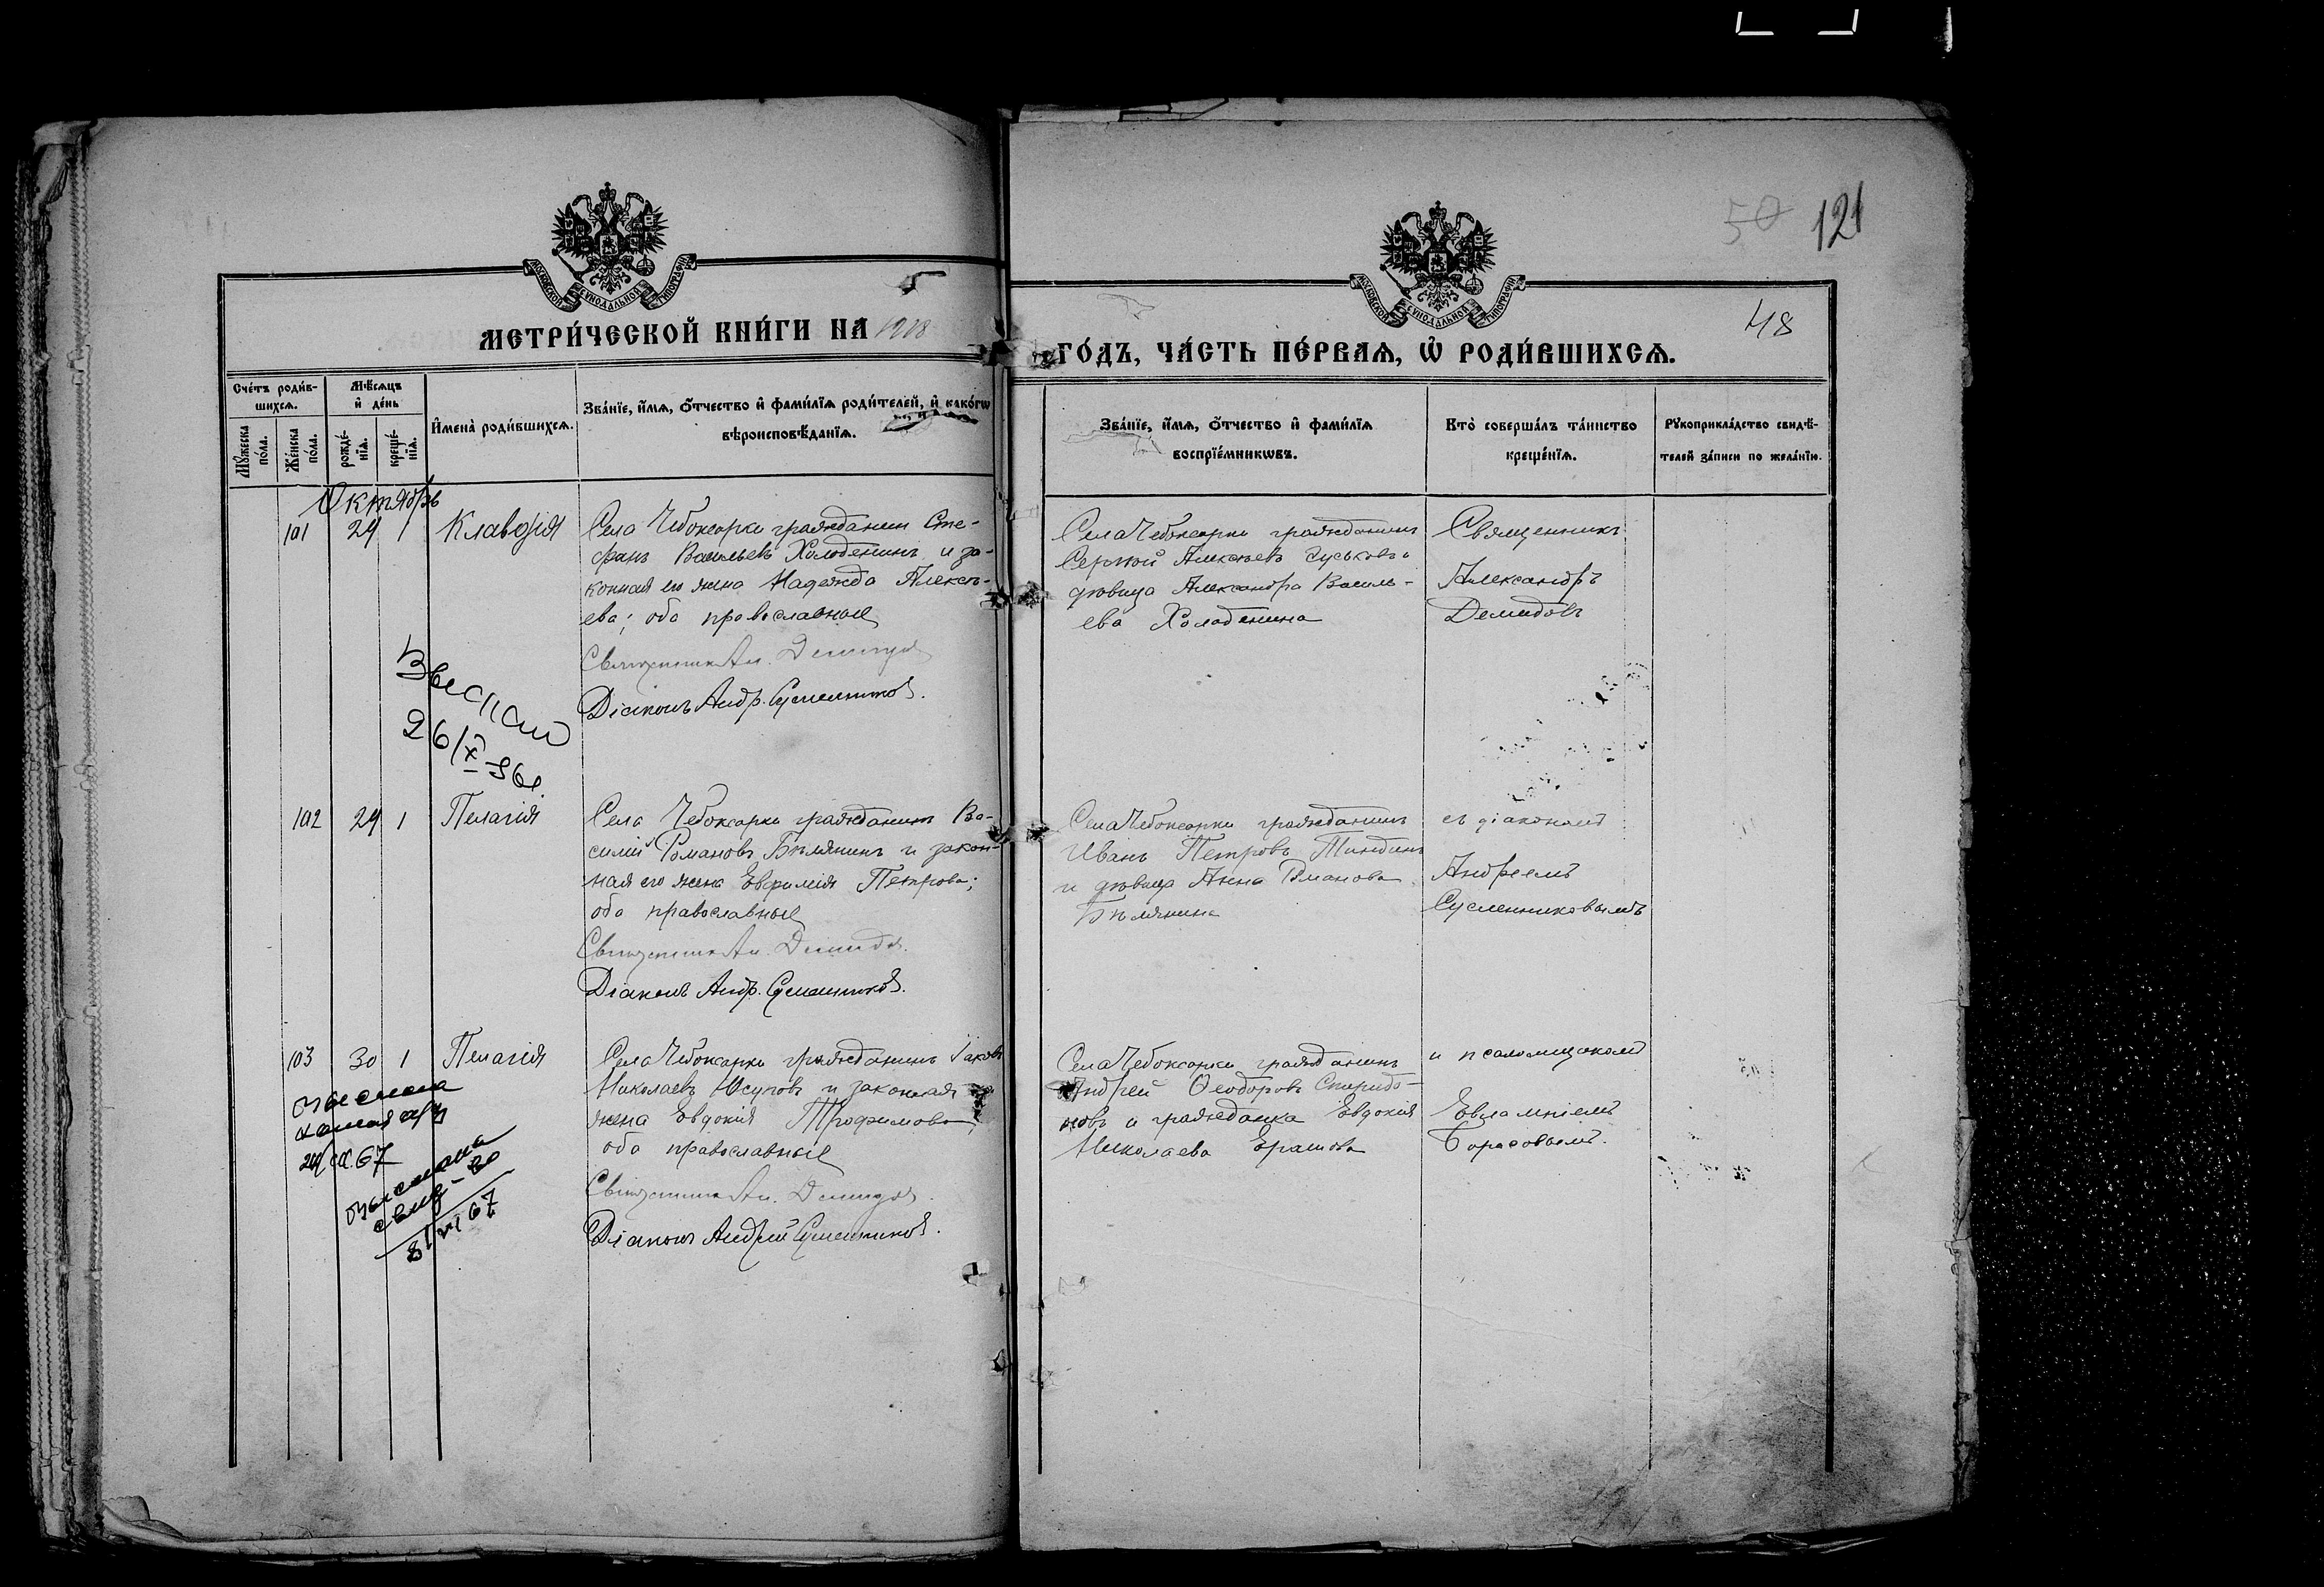 50 121
МОСКОВСКОЙ СѴНОДАЛЬНОЙ ТИПОГРАФІИ
МОСКОВСКОЙ СѴНОДАЛЬНОЙ ТИПОГРАФІИ
МЕТРИ́ЧЕСКОЙ КНИ́ГИ НА 1918
48
ГО́ДЪ, ЧА́СТЬ ПЕ́РВАѦ, Ѽ РОДИ́ВШИХСѦ.
Сче́тъ роди́в-
шихсѧ.
Мѣ́сѧцъ
и҆ де́нь
Мꙋ́жеска по́ла.
Же́нска по́ла.
рожде́-
нїѧ.
креще́-
нїѧ.
И҆мена̀ роди́вшихсѧ.
Зва́нїе, и҆́мѧ, ѻ҆́тчество и҆ фами́лїѧ роди́телей, и҆ како́гѡ
вѣроисповѣ́данїѧ.
Зва́нїе, и҆́мѧ, ѻ҆́тчество и҆ фами́лїѧ
воспрїе́мникѡвъ.
Кто̀ соверша́лъ та́инство
креще́нїѧ.
Рꙋкоприкла́дство свидѣ́-
телей за́писи по жела́нїю.
Октябрь
101 29 1 Клавдія
Села Чебоксарки гражданин Сте-
фанъ Васильевъ Холоденинъ и за-
конная его жена Надежда Алексѣ-
ева; оба православные
Священникъ Ал. Демидов
Діаконъ Андр. Сусленников.
Села Чебоксарки гражданинъ
Сергѣй Алексѣевъ Гуськовъ и
дѣвица Александра Василь-
ева Холоденина
Священникъ
Александръ
Демидовъ
Выслан
26/X-56г.
102 29 1 Пелагія
Села Чебоксарки гражданинъ Ва-
силій Романовъ Бѣлянинъ и закон-
ная его жена Евфимія Петрова;
оба православные
Священникъ Ал. Демидов.
Діаконъ Андр. Сусленников.
Села Чебоксарки гражданинъ
Иванъ Петровъ Тиндинъ
и дѣвица Анна Романова
Бѣлянина
съ діакономъ
Андреемъ
Сусленниковымъ
103 30 1 Пелагія
Села Чебоксарки гражданинъ Іаковъ
Николаевъ Юсуповъ и законная
жена Евдокія Трофимова;
оба православные
Священникъ Ал. Демидов.
Діаконъ Андрей Сусленников.
Села Чебоксарки гражданинъ
Андрей Ѳеодоровъ Спиридо-
новъ и гражданка Евдокія
Николаева Ерашова
и псаломщикомъ
Евлампіемъ
Борисовымъ.
выслана
67
выслана
свид-во
8/VI 67